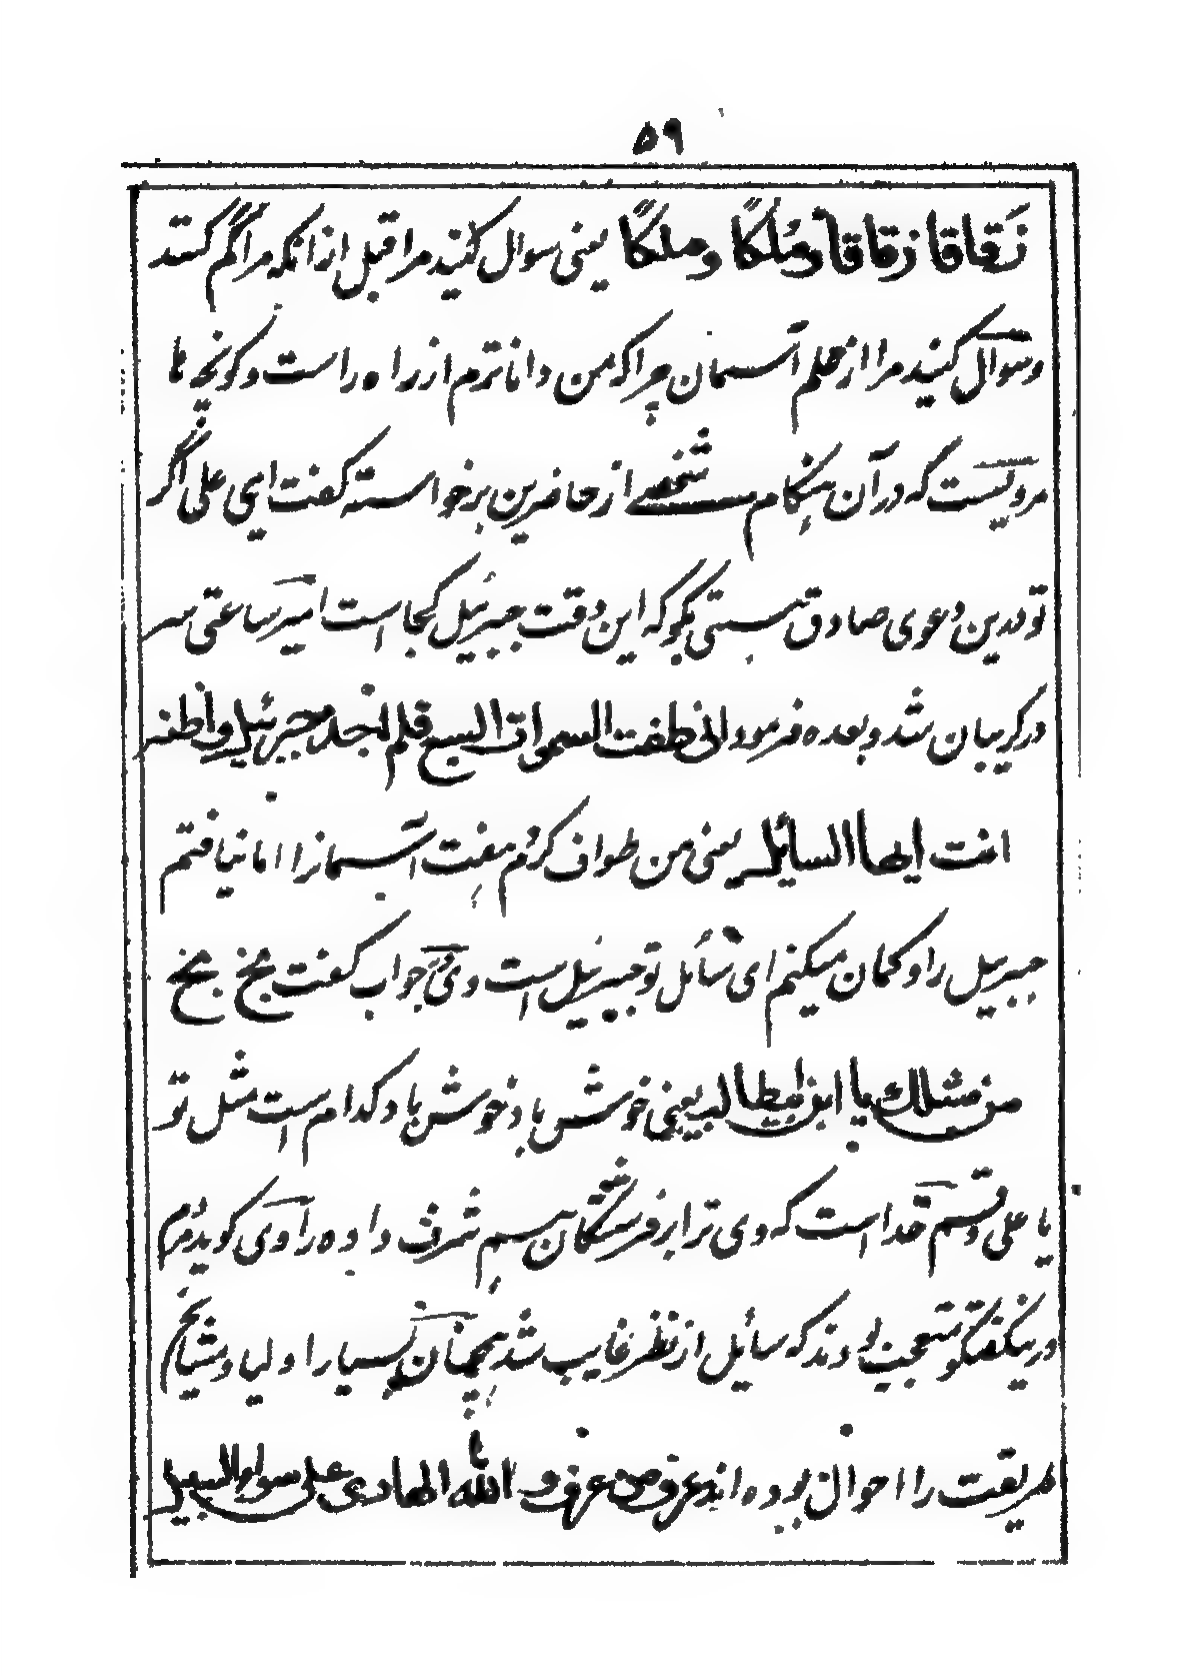 ۵۹
زقاقا زقاقا وملکا وملکا یعنی سوال کنید مرا قبل از انکه مرا گم کنید
و سوال کنید مرا از علم آسمان چرا که من داناترم از راه راست و کونچه ها
مرویست که در آن هنگام شخصے از حاضرین برخواسته گفت ای علی اگر
تو درین دعوی صادق هستی بگو که این وقت جبرئیل کجا است امیر ساعتی سر
در گریبان شد و بعده فرمود انی طفت السموات السبع فلم اجد جبرئیل و اظن
انت ایها السایل یعنی من طواف کردم هفت آسمانرا اما نیافتم
جبرییل را و کمان میکنم ای سائل تو جبرییل است وی جواب گفت بخ بخ
من مثلك یا ابن ابیطالب یعنی خوش باد خوش باد کدام است مثل تو
یا علی و قسم خدا است که وی ترا بر فرشتگان هم شرف داده راوی گوید مردم
درینگفتگو متعجب بودند که سائیل از نظر غایب شد همچنان بسیار اولیا و مشایخ
طریقت را احوال بوده اند عرف من عرف و الله الهادی علی سواء السبیل